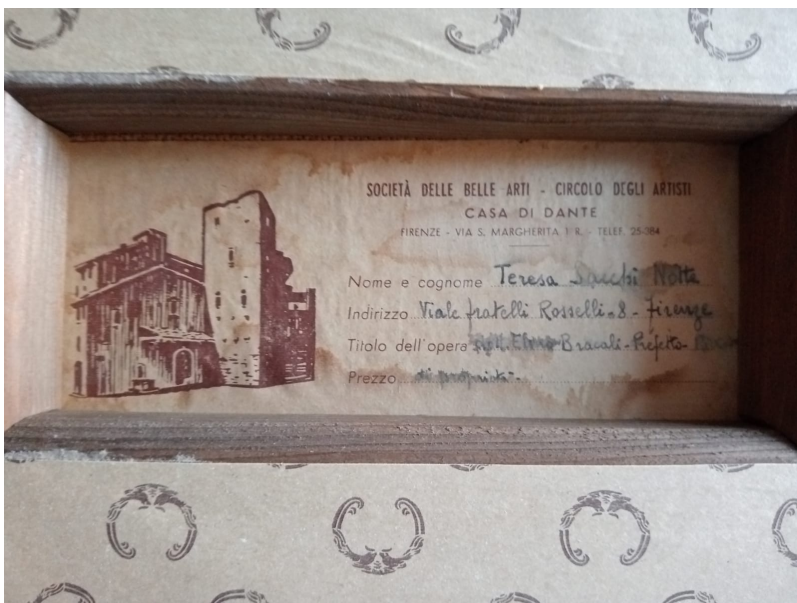 SOCIETÀ DELLE BELLE ARTI - CIRCOLO DEGLI ARTISTI
CASA DI DANTE
FIRENZE - VIA S. MARGHERITA 1 R. - TELEF. 25-384
Nome e cognome Teresa Sacchi Notte
Indirizzo Viale fratelli Rosselli - 8 - firenze
Titolo dell'opera Bracali - Prefetto -
Prezzo di proprietà -